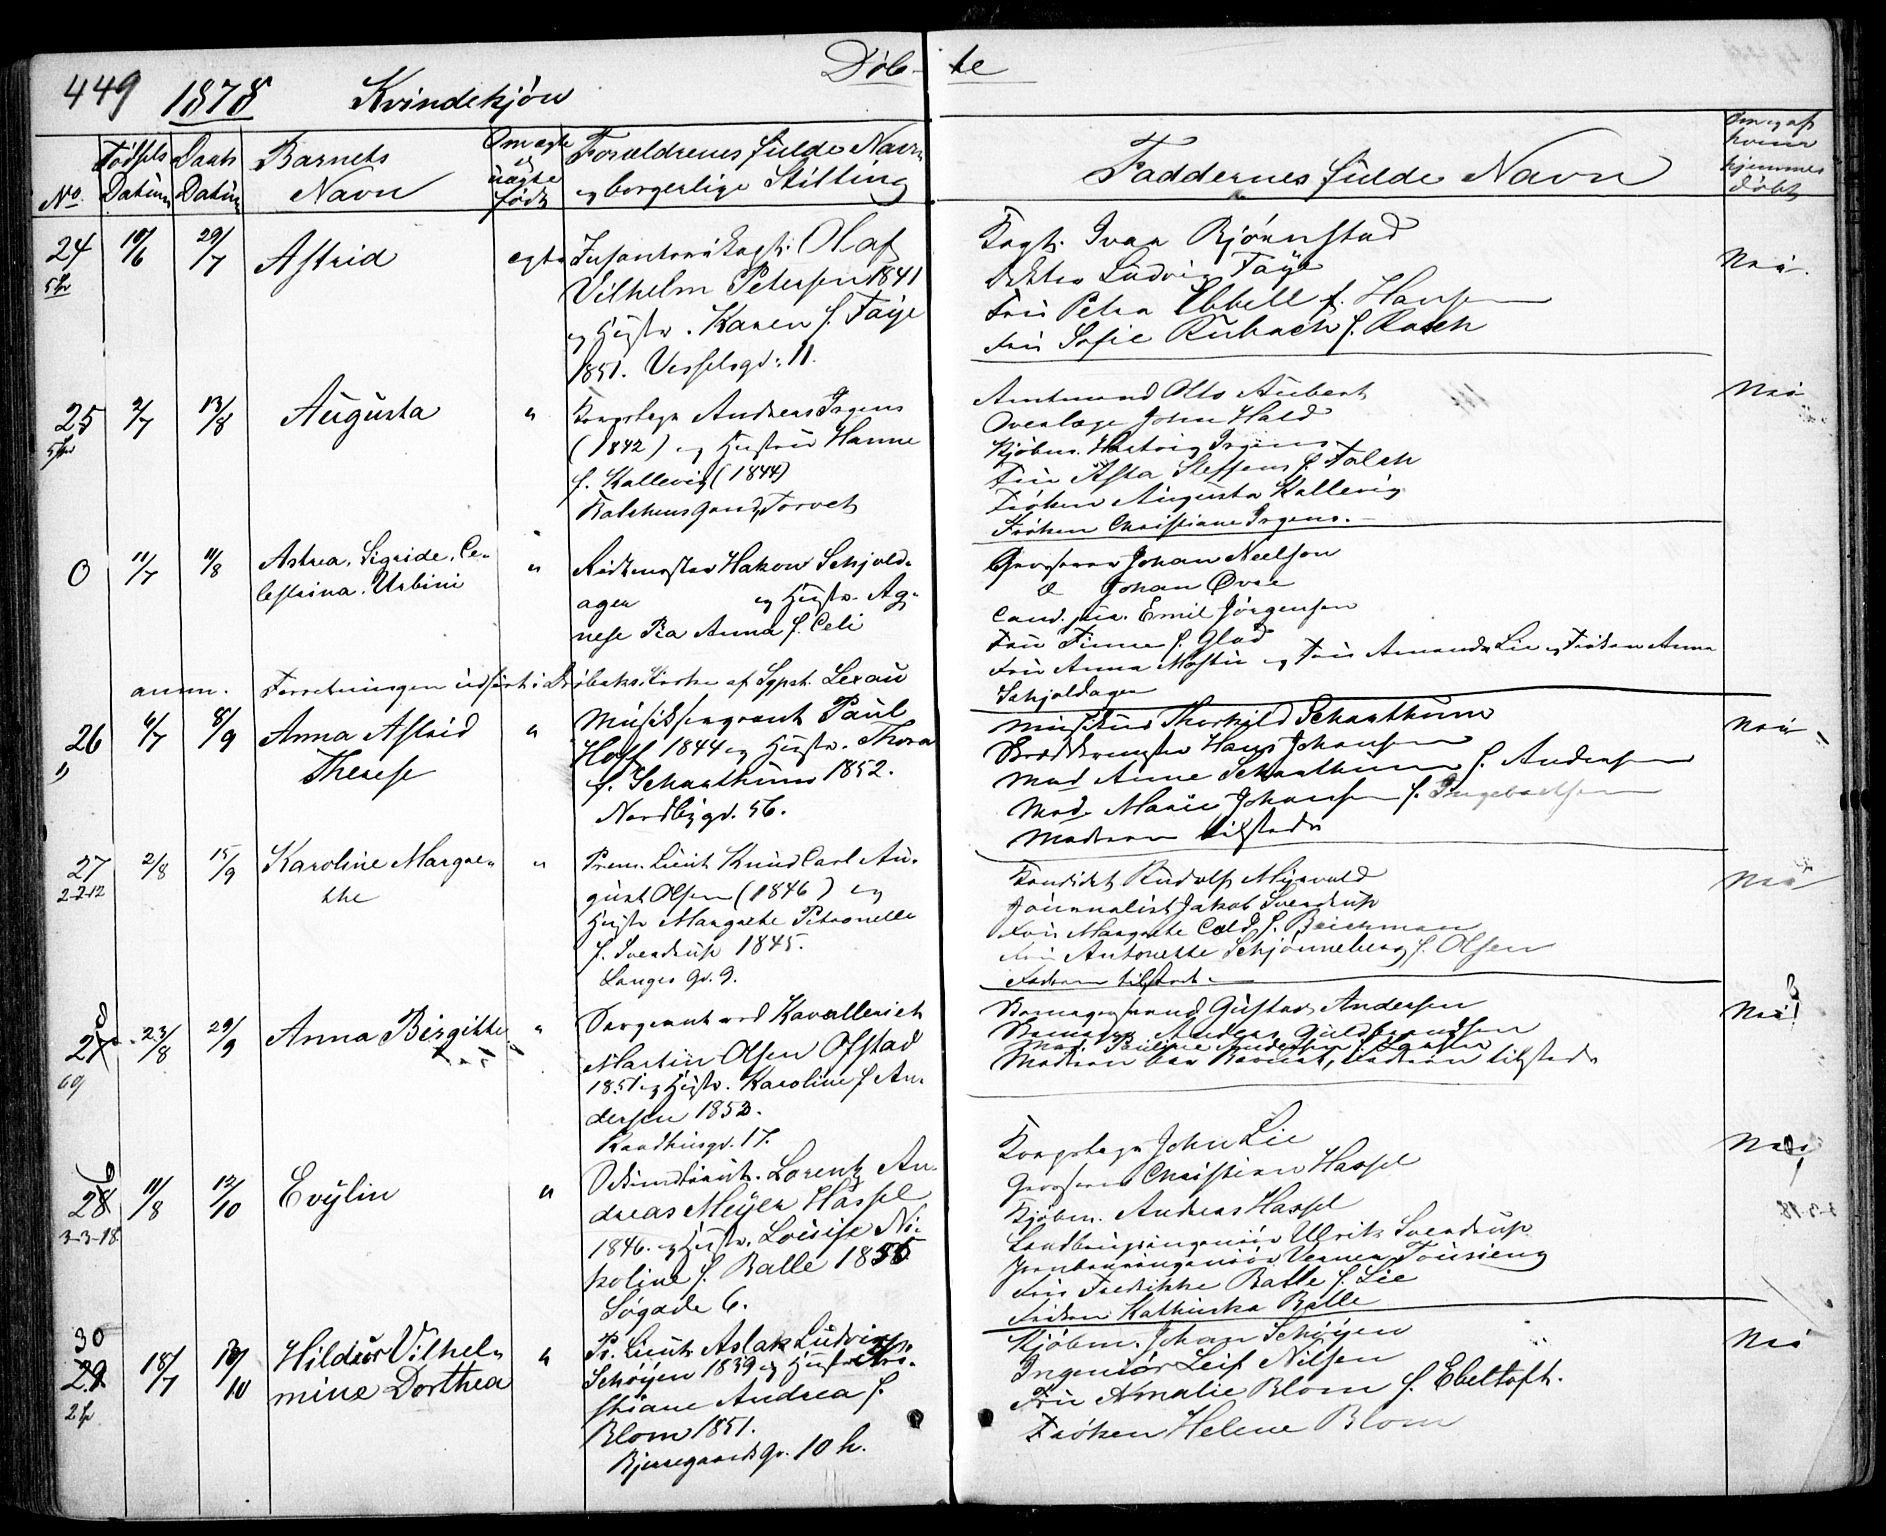 449 1878 Kvindekjön Döb- te
No. Födsels Datum Daabs Datum Barnets Navn Om ægte el uægte född Forældrenes fulde Navn og borgerlige Stilling Faddernes fulde Navn Om og af hvem hjemmedöbt
24 10/6 29/7 Astrid egte
Olaf
Vilhelm Petersen 1841
og Hustr. Karen f. Faÿe
1851. Vesselsgd. 11.
Kapt. Ivar Björnstad
Ludvig Faÿe
Fru Petra Ebbell f. Hansen
Fru Sofie Rubach f. Rasch
Nei.
25 2/7 13/8 Augusta "
Korpslæge Andreas Irgens
(1842) og Hustru Hanne
f. Kallevig (1844)
Torvet
Amtmand Otto Aubert
Overlæge John Hald
Kjöbm. Hartvig Irgens
Fru Asta Steffens f. Falch
Fröken Augusta Kallevig
Fröken Christiane Irgens.
Nei
0 11/7 11/8 Astrea. Sigride. Ce-
lestrina. Urbini
"
Ridtmester Hakon Schjold-
ager og Hustr. Ag-
nese Pia Anna f. Celi
Grosserer Johan Neelson
d Johan Övre
Cand. jur. Emil Jörgensen
Fru Finne f. Glad
Fru Anna og Fru Amanda Lie og Fröken Anna
Schjoldager
anm. Forretningen udfört i Dröbaks Kirke af Sgpst. Lexau
26 6/7 8/9 Anna Astrid
Therese
"
Musiksergeant Paul
Hoff 1844 og Hustr. Thora
f. Schaathuun 1852.
Nordbygd. 56.
Musikus Thorkild Schaathuun
Hans Johansen
Mad Anne Schaathuun f. Andersen
Mad. Marie Johansen f. Ingebretsen
Moderen tilstede
Nei
27 2/8 15/9 Karoline Margre-
the
2-2-12
"
Prem. Lieut Knud Carl Au-
gust Olsen (1846) og
Hustr Margrethe Petronelle
f. Sverdrup 1845.
Langes Gd. 9.
Kandidat Rudolf
Journalist Jakob Sverdrup
Fru Margrete Cold f. Beichman
Fru Antonette Schjönneberg f. Olsen
Faderen tilstede
Nei
28 23/8 29/9 Anna Birgitte
"
Sergeant ved Kavalleriet
Martin Olsen Ofstad
1851 og Hustr. Karoline f An-
dersen 1853.
Raadhusgd. 17.
Gustav Andersen
Andreas Guldbrandsen
Mad. Pauline Andersen f. Larsen
Moderen bar Barnet, Faderen tilstede
Nei
28 11/8 12/10 Evÿlin
3-3-18
"
Lorentz An-
dreas Meÿer Hassel
1846. og Hustr. Louise Ni-
koline f. Balle 1855
Sögade 6.
Korpslæge John Lie
Grosserer Christian Hassel
Kjöbm. Andreas Hassel
Ulrik Sverdrup
Jernbaneingeniör
Fru Fredrikke Balle f. Lie
Fröken Kathinka Balle
Nei
30 29 18/7 13/10 Hildur Vilhel-
mine Dorthea
"
Pr. Lieut Aslak Ludvig
Schöÿen 1839 og Hustr Kri-
stiane Andrea f.
Blom 1851.
Bjerregaards Gd. 10 b.
Kjöbm. Johan Schöÿen
Ingeniör Leif Nilsen
Fru Amalie Blom f. Ebeltoft.
Fröken Helene Blom
Nei